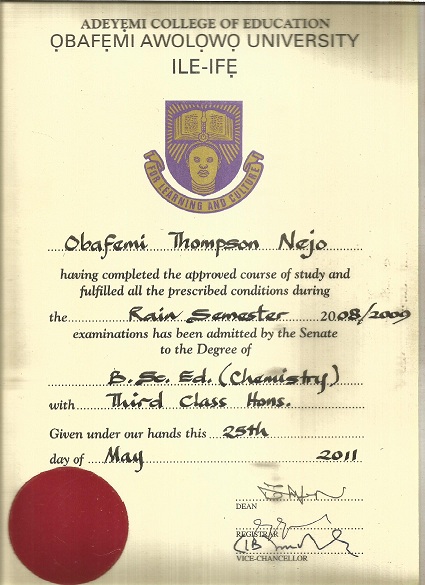 ADEYẸMI COLLEGE OF EDUCATION
ỌBAFẸMI AWOLỌWỌ UNIVERSITY
ILE-IFẸ
FOR LEARNING AND CULTURE
Obafemi Thompson Nejo
having completed the approved course of study and
fulfilled all the prescribed conditions during
the Rain Semester 2008/2009
examinations has been admitted by the Senate
to the Degree of
B.Sc. Ed. (Chemistry)
with Third Class Hons.
Given under our hands this 25th
day of May 2011
DEAN
REGISTRAR
VICE-CHANCELLOR